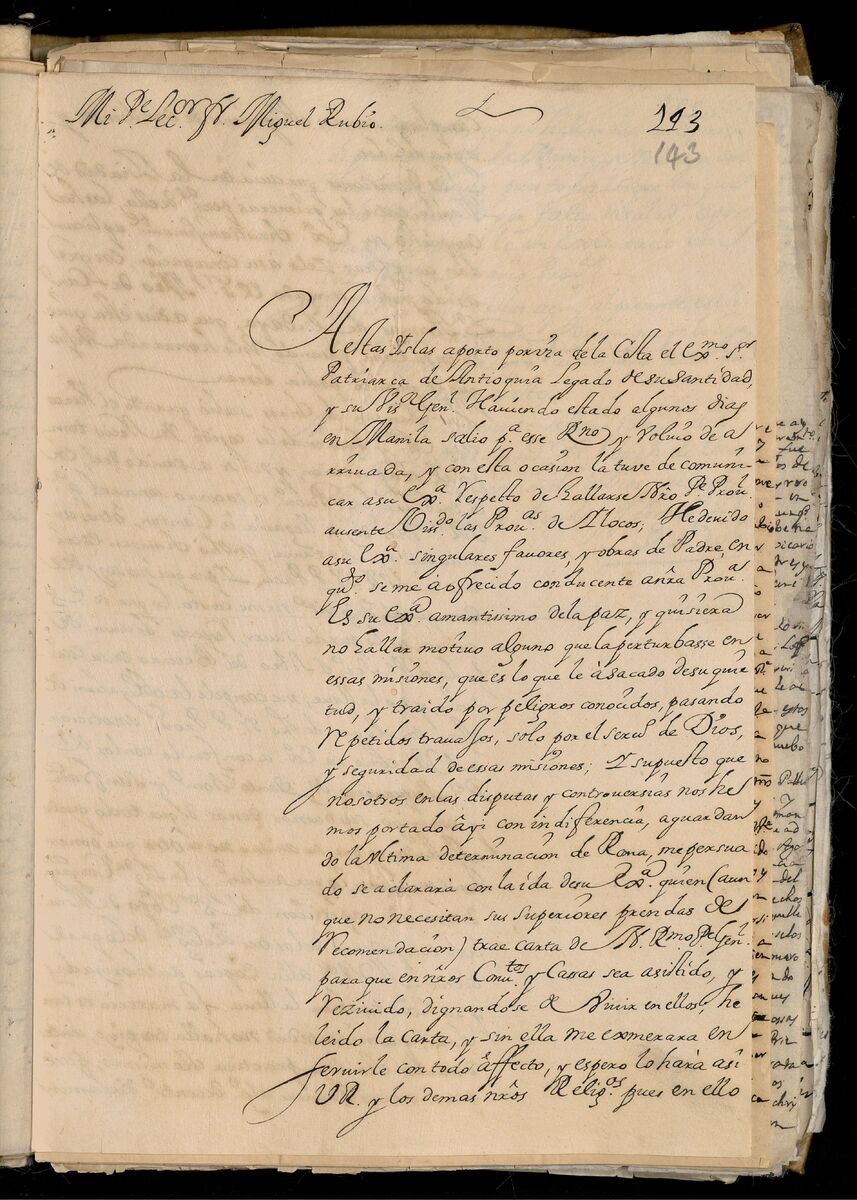 Mi P.e Lec.or fr. Miguel Rubio.
193
143
A estas Yslas aporto por via de la Costa el Ex.mo S.or
Patriarca de Antioquia Legado de su Santidad,
y su Vis.or Gen.l Haviendo estado algunos dias
en Manila salio p.a esse R.no y volvio de a
rrivada, y con esta ocasion la tuve de comuni
car a su Ex.a Respecto de hallarse Nro P.e Prov.l
ausente Vis.do las Prov.as de Ilocos; He devido
a su Ex.a singulares favores, y obras de Padre, en
qu.to se me à ofrecido conducente a nra Prov.a
Es su Ex.a amantissimo de la paz, y quisiera
no hallar motivo alguno que la perturbasse en
essas misiones, que es lo que le à sacado de su quie
tud, y traido por peligros conocidos, pasando
repetidos travajos, solo por el serv.o de Dios,
y seguridad de essas misiones; Y supuesto que
nosotros en las disputas y controversias nos he
mos portado ày con indiferencia, aguardan
do la Vltima determinacion de Roma, me persua
do se aclarara con la ida de su Ex.a quien (aun
que no necesitan sus superiores prendas de
recomendacion) trae carta de N. R.mo P.e Gen.l
para que en nros Conv.tos y Cassas sea asistido, y
rezivido, dignandose de vivir en ellos, he
leido la carta, y sin ella me exmerara en
servirle con todo affecto, y espero lo harà asi
VR. y los demas nros Relig.os pues en ello